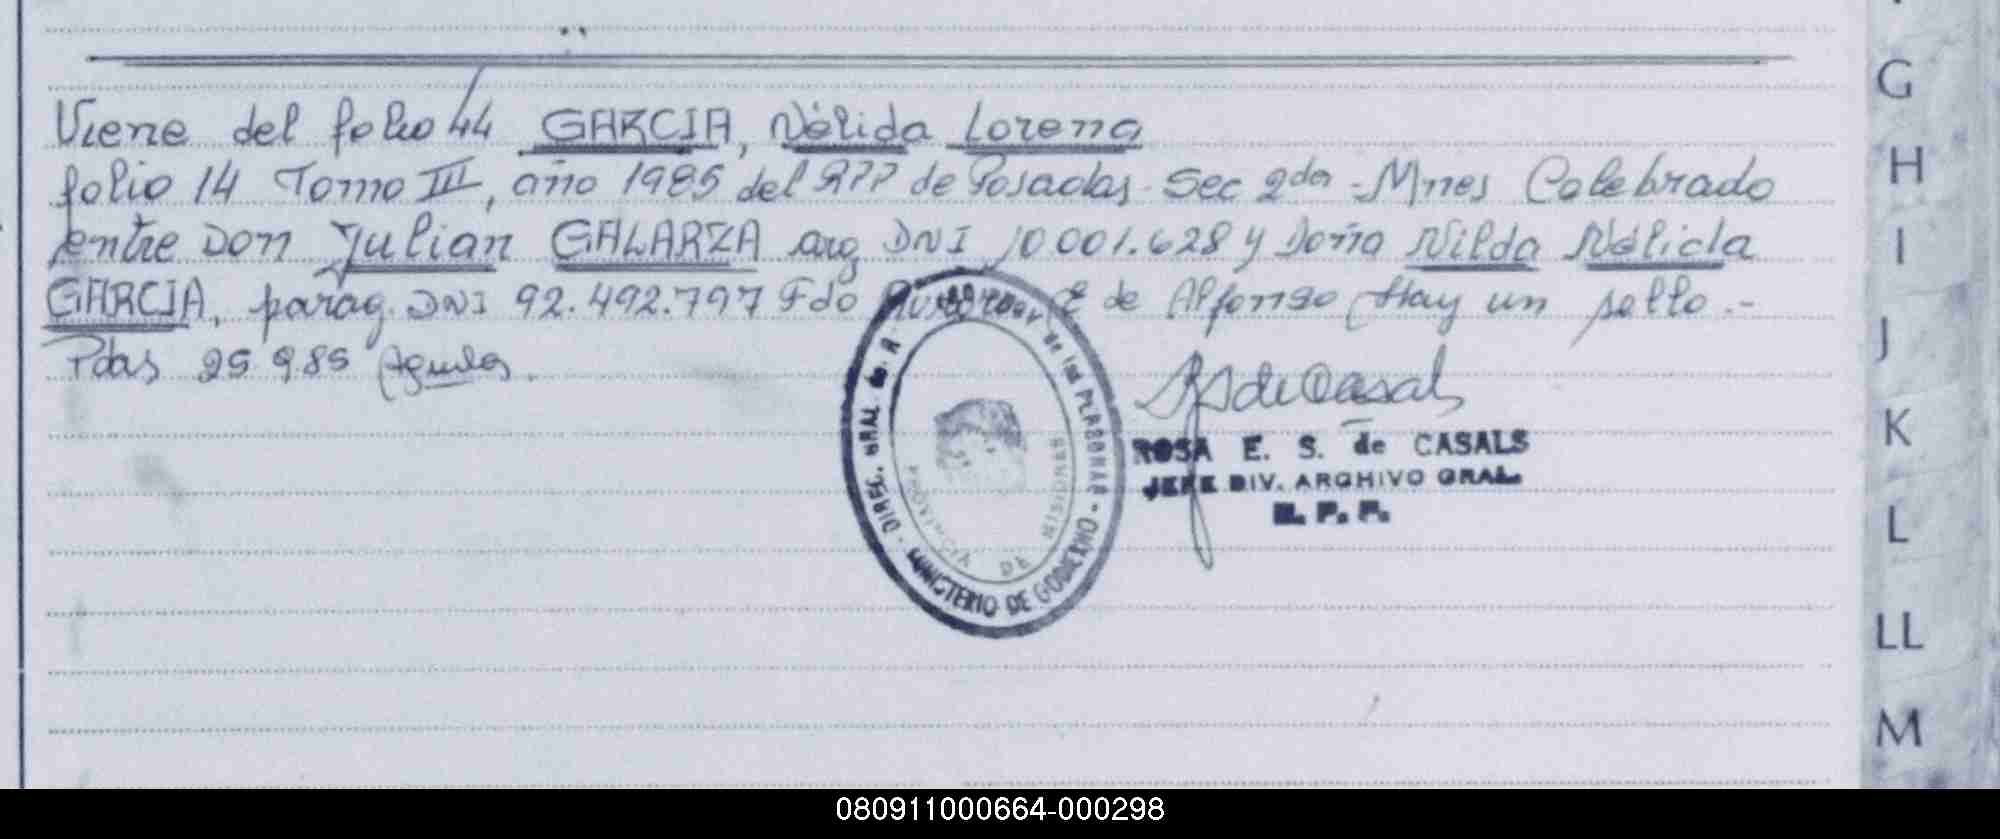 Viene del folio 44 GARCIA, Nélida Lorena
folio 14 Tomo III, año 1985 del RPP de Posadas. Sec 2da - Mnes Celebrado
entre Don Julian GALARZA arg DNI 10.001.628 y Doña Nilda Nélida
GARCIA, parag. DNI 92.492.797 Fdo E de Alfonso Hay un sello.-
Pdas 25.9.85
DIREC. GRAL. de R. de las PERSONAS - MINISTERIO DE GOBIERNO -
PROVINCIA DE MISIONES
ROSA E. S. de CASALS
JEFE DIV. ARCHIVO GRAL.
R. P. P.
G
H
I
J
K
L
LL
M
080911000664-000298